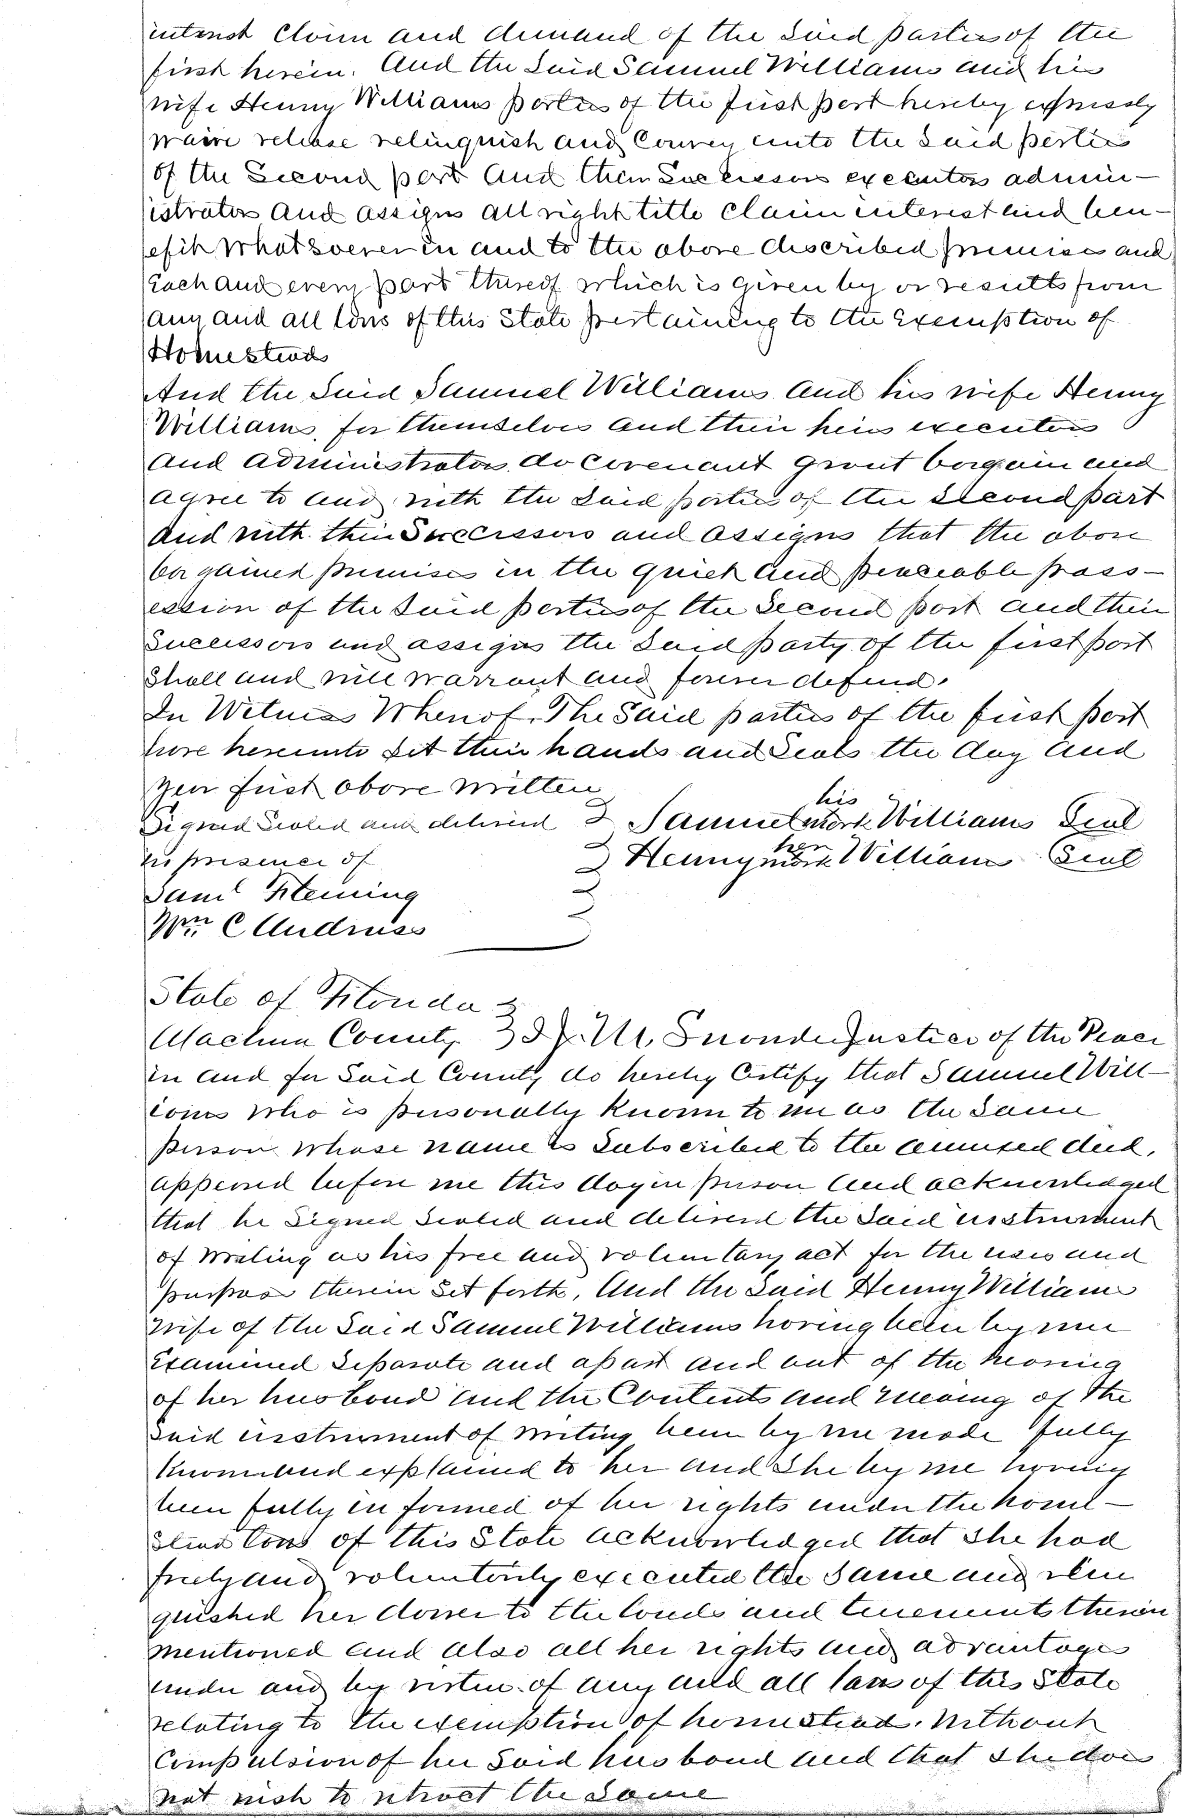 interest Claim and demand of the Said parties of the
first herein. And the Said Samuel Williams and his
wife Henny Williams parties of the first part hereby expressly
waive release relinquish and Convey unto the Said parties
of the Second part and their Successors executors admin-
istrators and assigns all right title Claim interest and ben-
efit whatsoever in and to the above described premises and
Each and every part thereof which is given by or results from
any and all laws of this State pertaining to the Exemption of
Homesteads
And the Said Samuel Williams and his wife Henny
Williams, for themselves and their heirs executors
and administrators do Covenant grant bargain and
agree to and with the Said parties of the Second part
and with their Successors and assigns that the above
bargained premises in the quiet and peaceable poss-
ession of the Said parties of the Second part and their
Successors and assigns the Said party of the first part
Shall and will warrant and forever defend.
In Witness Whereof, The Said parties of the first part
have hereunto Set their hands and Seals the day and
year first above written
Signed Sealed and delivered Samuel his mark Williams Seal
in presence of Henny her mark Williams Seal
Saml Fleming
Wm C Andruss
State of Florida
Alachua County I Justice of the Peace
in and for Said County do hereby Certify that Samuel Will-
iams who is personally Known to me as the Same
person whose name is Subscribed to the annexed deed,
appeared before me this day in person and acknowledged
that he Signed Sealed and delivered the Said instrument
of writing as his free and voluntary act for the uses and
purposes therein Set forth, And the Said Henny Williams
wife of the Said Samuel Williams having been by me
Examined Separate and apart and out of the hearing
of her husband and the Contents and meaning of the
Said instrument of writing been by me made fully
Known and explained to her and She by me having
been fully informed of her rights under the home-
stead laws of this State acknowledged that She had
freely and voluntarily executed the Same and relin
quished her dower to the lands and tenements therein
mentioned and also all her rights and advantages
under and by virtue of any and all laws of this State
relating to the exemption of homestead. Without
Compulsion of her Said husband and that She does
not wish to retract the Same